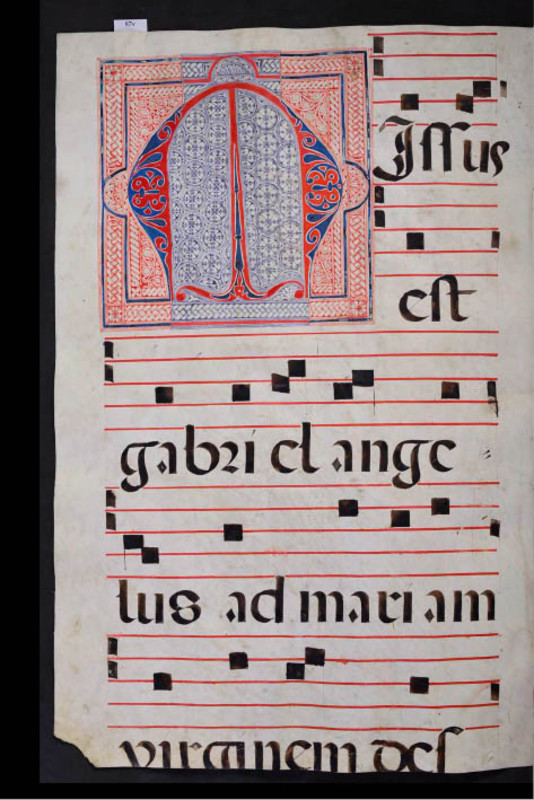 MIssus
est
gabri el ange
lus ad mari am
virginem des